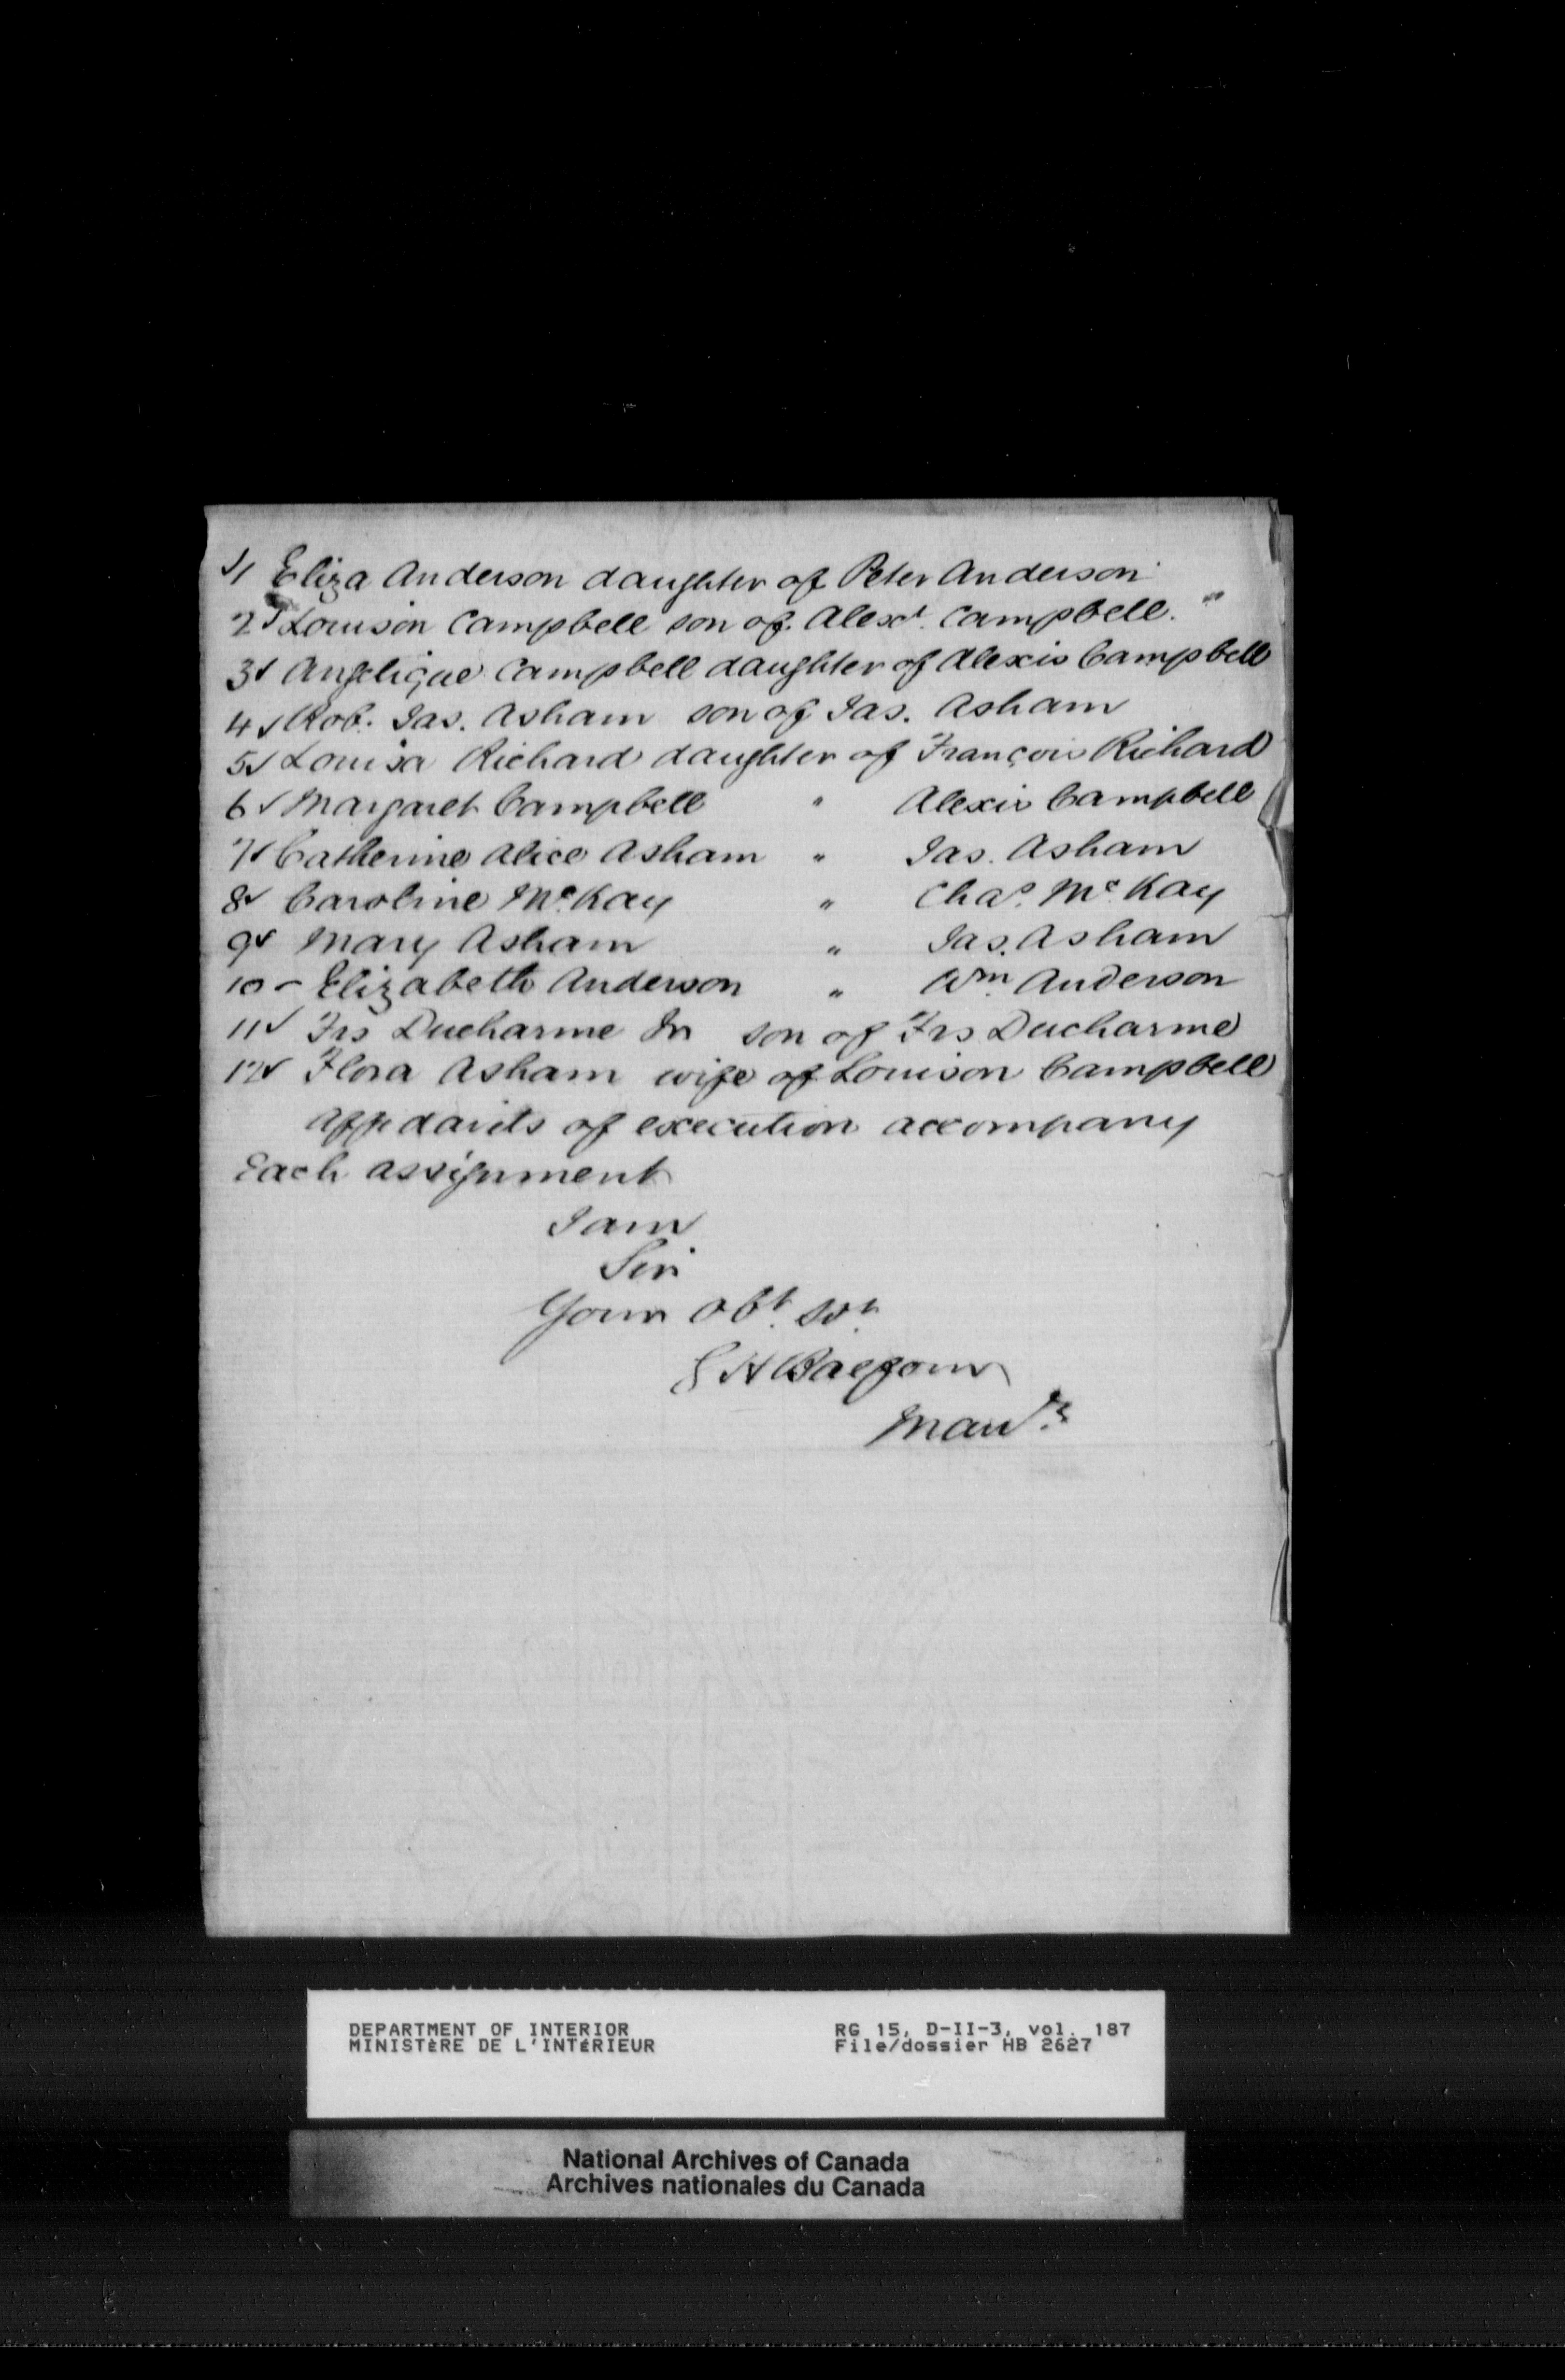 √1 Eliza Anderson daughter of Peter Anderson
2√ Louison Campbell son of Alexr. Campbell. "
3√ Angelique Campbell daughter of Alexis Campbell
4√ Rob. Jas. Asham son of Jas. Asham
5√ Louisa Richard daughter of François Richard
6√ Margaret Campbell " Alexis Campbell
7√ Catherine Alice Asham " Jas. Asham
8√ Caroline Mc.Kay " Chas. Mc.Kay
9√ Mary Asham " Jas. Asham
10 - Elizabeth Anderson " Wm. Anderson
11√ Frs Ducharme Jr son of Frs Ducharme
12√ Flora Asham wife of Louison Campbell
Affidavits of execution accompany
Each assignment
I am
Sir
Your obt. svt.
DEPARTMENT OF INTERIOR
MINISTÈRE DE L'INTÉRIEUR
RG 15, D-II-3, vol. 187
File/dossier HB 2627
National Archives of Canada
Archives nationales du Canada